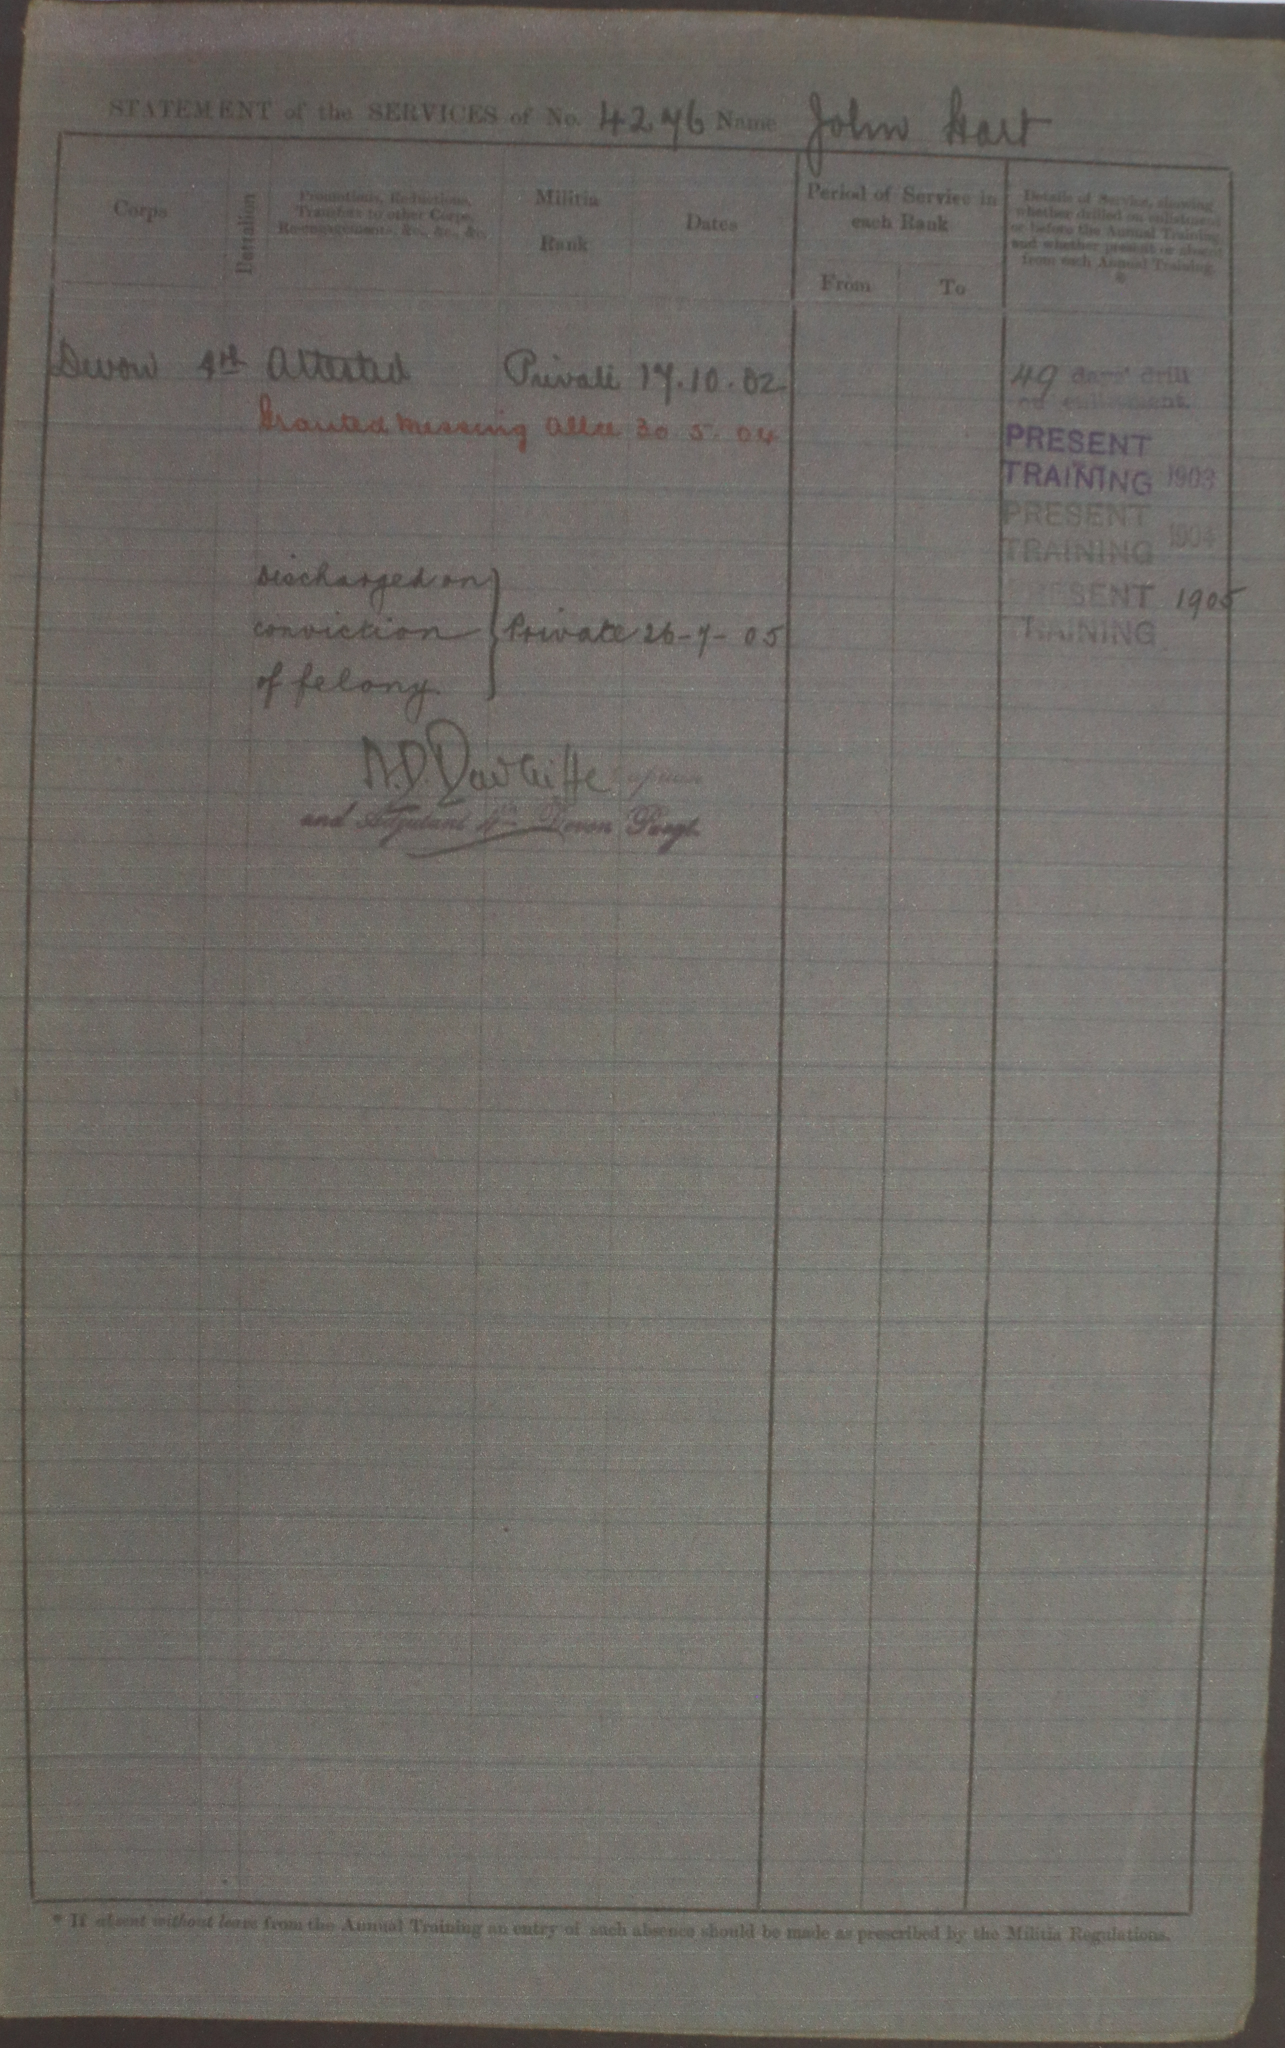 STATEMENT of the SERVICES of No. 4276 Name John Hart
Corps
Battalion
Promotions, Reductions,
Transfers to other Corps,
Re-engagements, &c., &c., &c.
Militia
Rank
Dates
Period of Service in
each Rank
From To
Details of Service, showing
whether drilled on enlistment
or before the Annual Training,
and whether present or absent
from each Annual Training.
*
Devon 4th Attested Private 17.10.02
49 days' drill
on enlistment.
Granted messing allce 30.5.04
PRESENT
TRAINING 1903
PRESENT
TRAINING 1904
PRESENT 1905
TRAINING
Discharged on
conviction Private 26-7-05
of felony.
Captain
and Adjutant 4th Devon Regt.
* If absent without leave from the Annual Training an entry of such absence should be made as prescribed by the Militia Regulations.